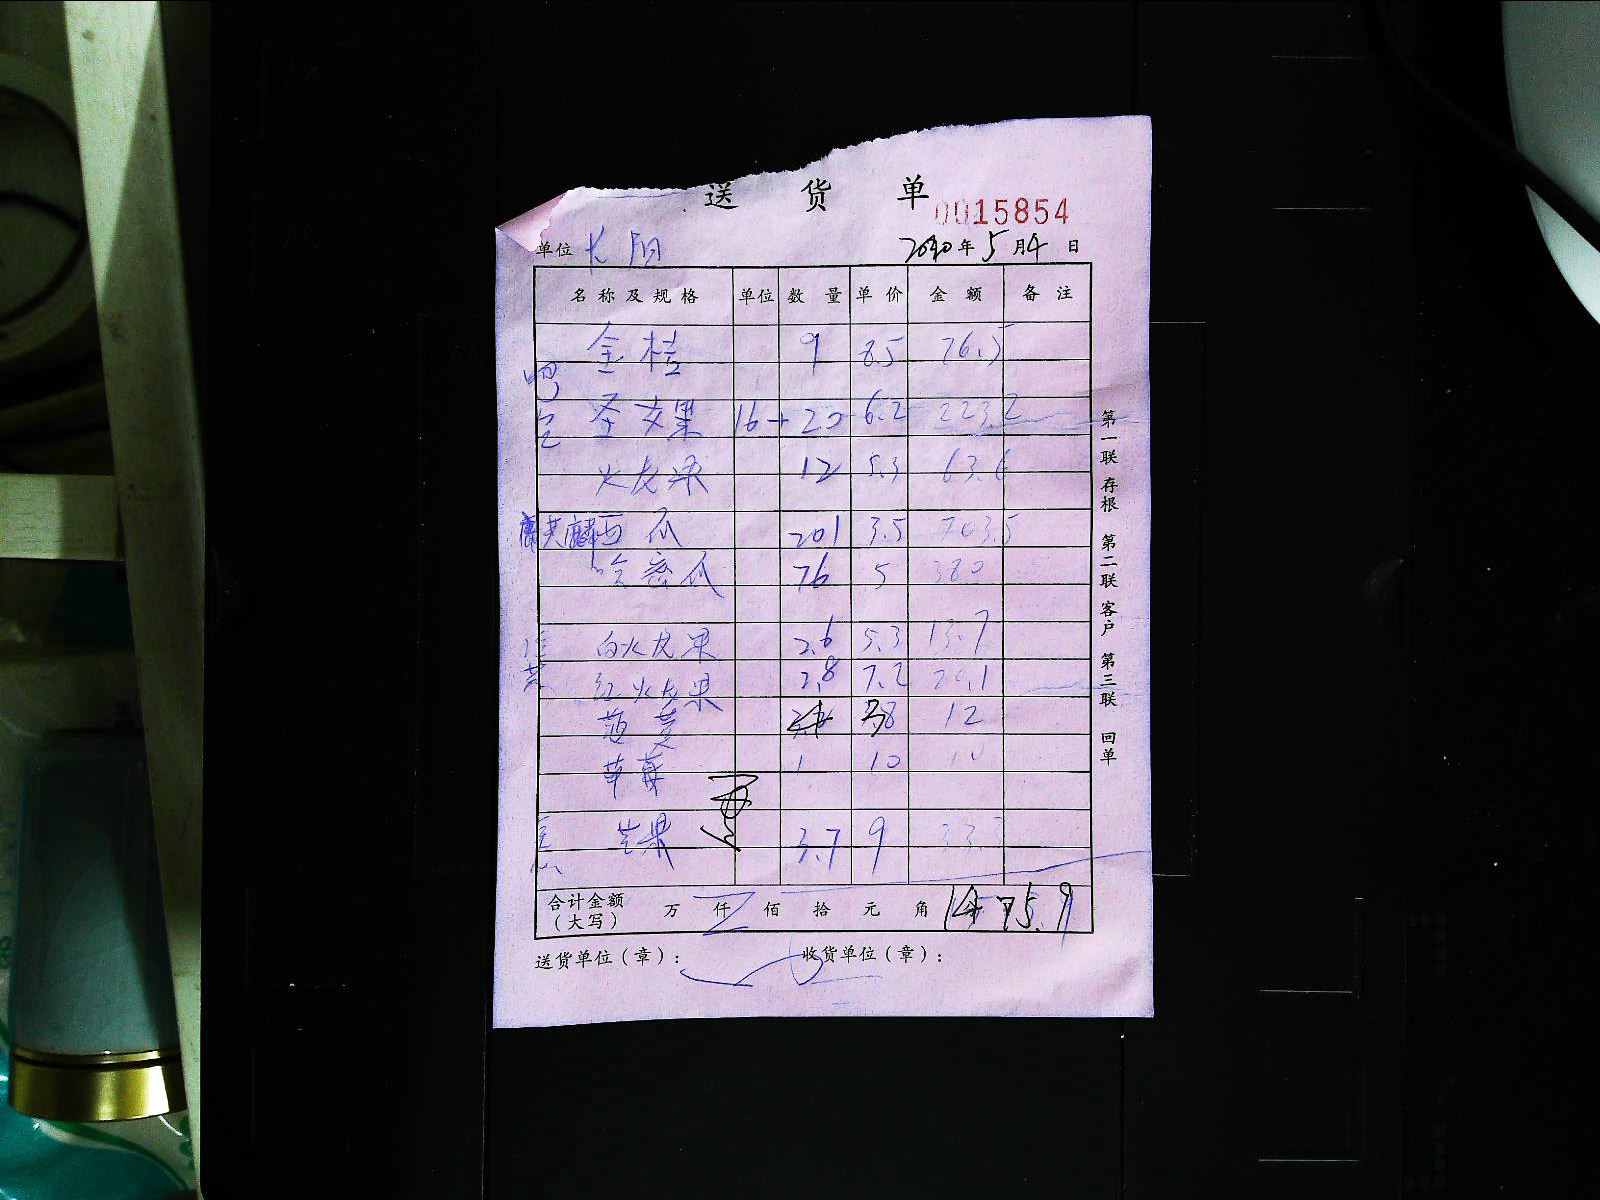 送 货 单
0015854
单位 长阳 2020年5月4日
名称及规格 单位 数量 单价 金额 备注
金桔 9 8.5 76.5
圣女果 16+20 6.2 223.2
火龙果 12 5.3 63.6
西瓜 201 3.5 703.5
哈密瓜 76 5 380
白火龙果 2.6 5.3 13.7
红火龙果 2.8 7.2 20.1
12
草莓 1 10 10
芒果 3.7 9 33
合计金额(大写) 万 仟 佰 拾 元 角 1475.9
送货单位(章): 收货单位(章):
第一联 存根 第二联 客户 第三联 回单